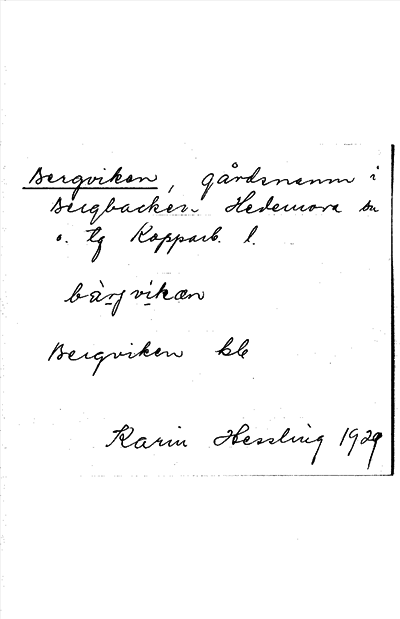 Bergviken, gårdsnamn i
Bergbacken Hedemora sn
o. tg Kopparb. l.
bär̀j vikæn
Bergviken kb
Karin Hessling 1929